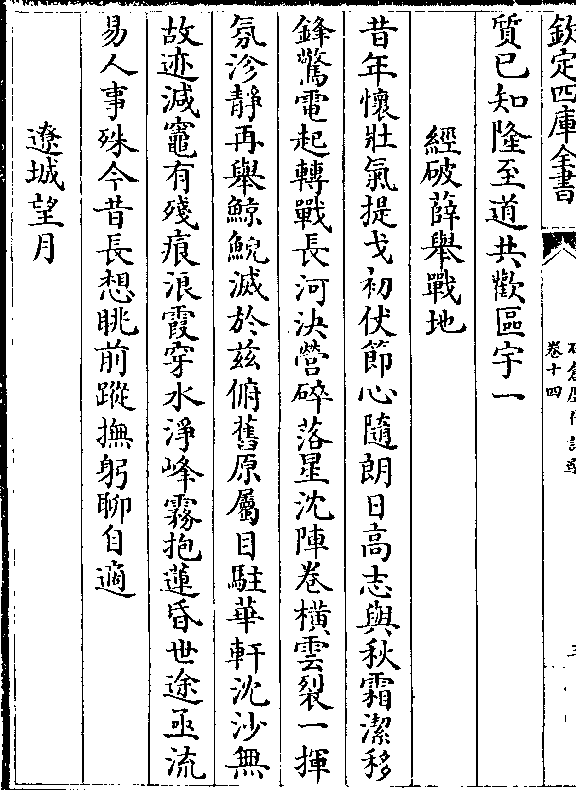 欽定四庫全書
卷十四
質已知隆至道共歡區宇一
經破薛舉戰地
昔年懷壯氣提戈初伏節心隨朗日高志與秋霜潔移
鋒驚電起轉戰長河決營碎落星沈陣卷橫雲裂一揮
氛沴靜再舉鯨鯢滅於茲俯舊原屬目駐華軒沈沙無
故迹減竈有殘痕浪霞穿水淨峰霧抱蓮昏世途亟流
易人事殊今昔長想眺前蹤撫躬聊自適
遼城望月